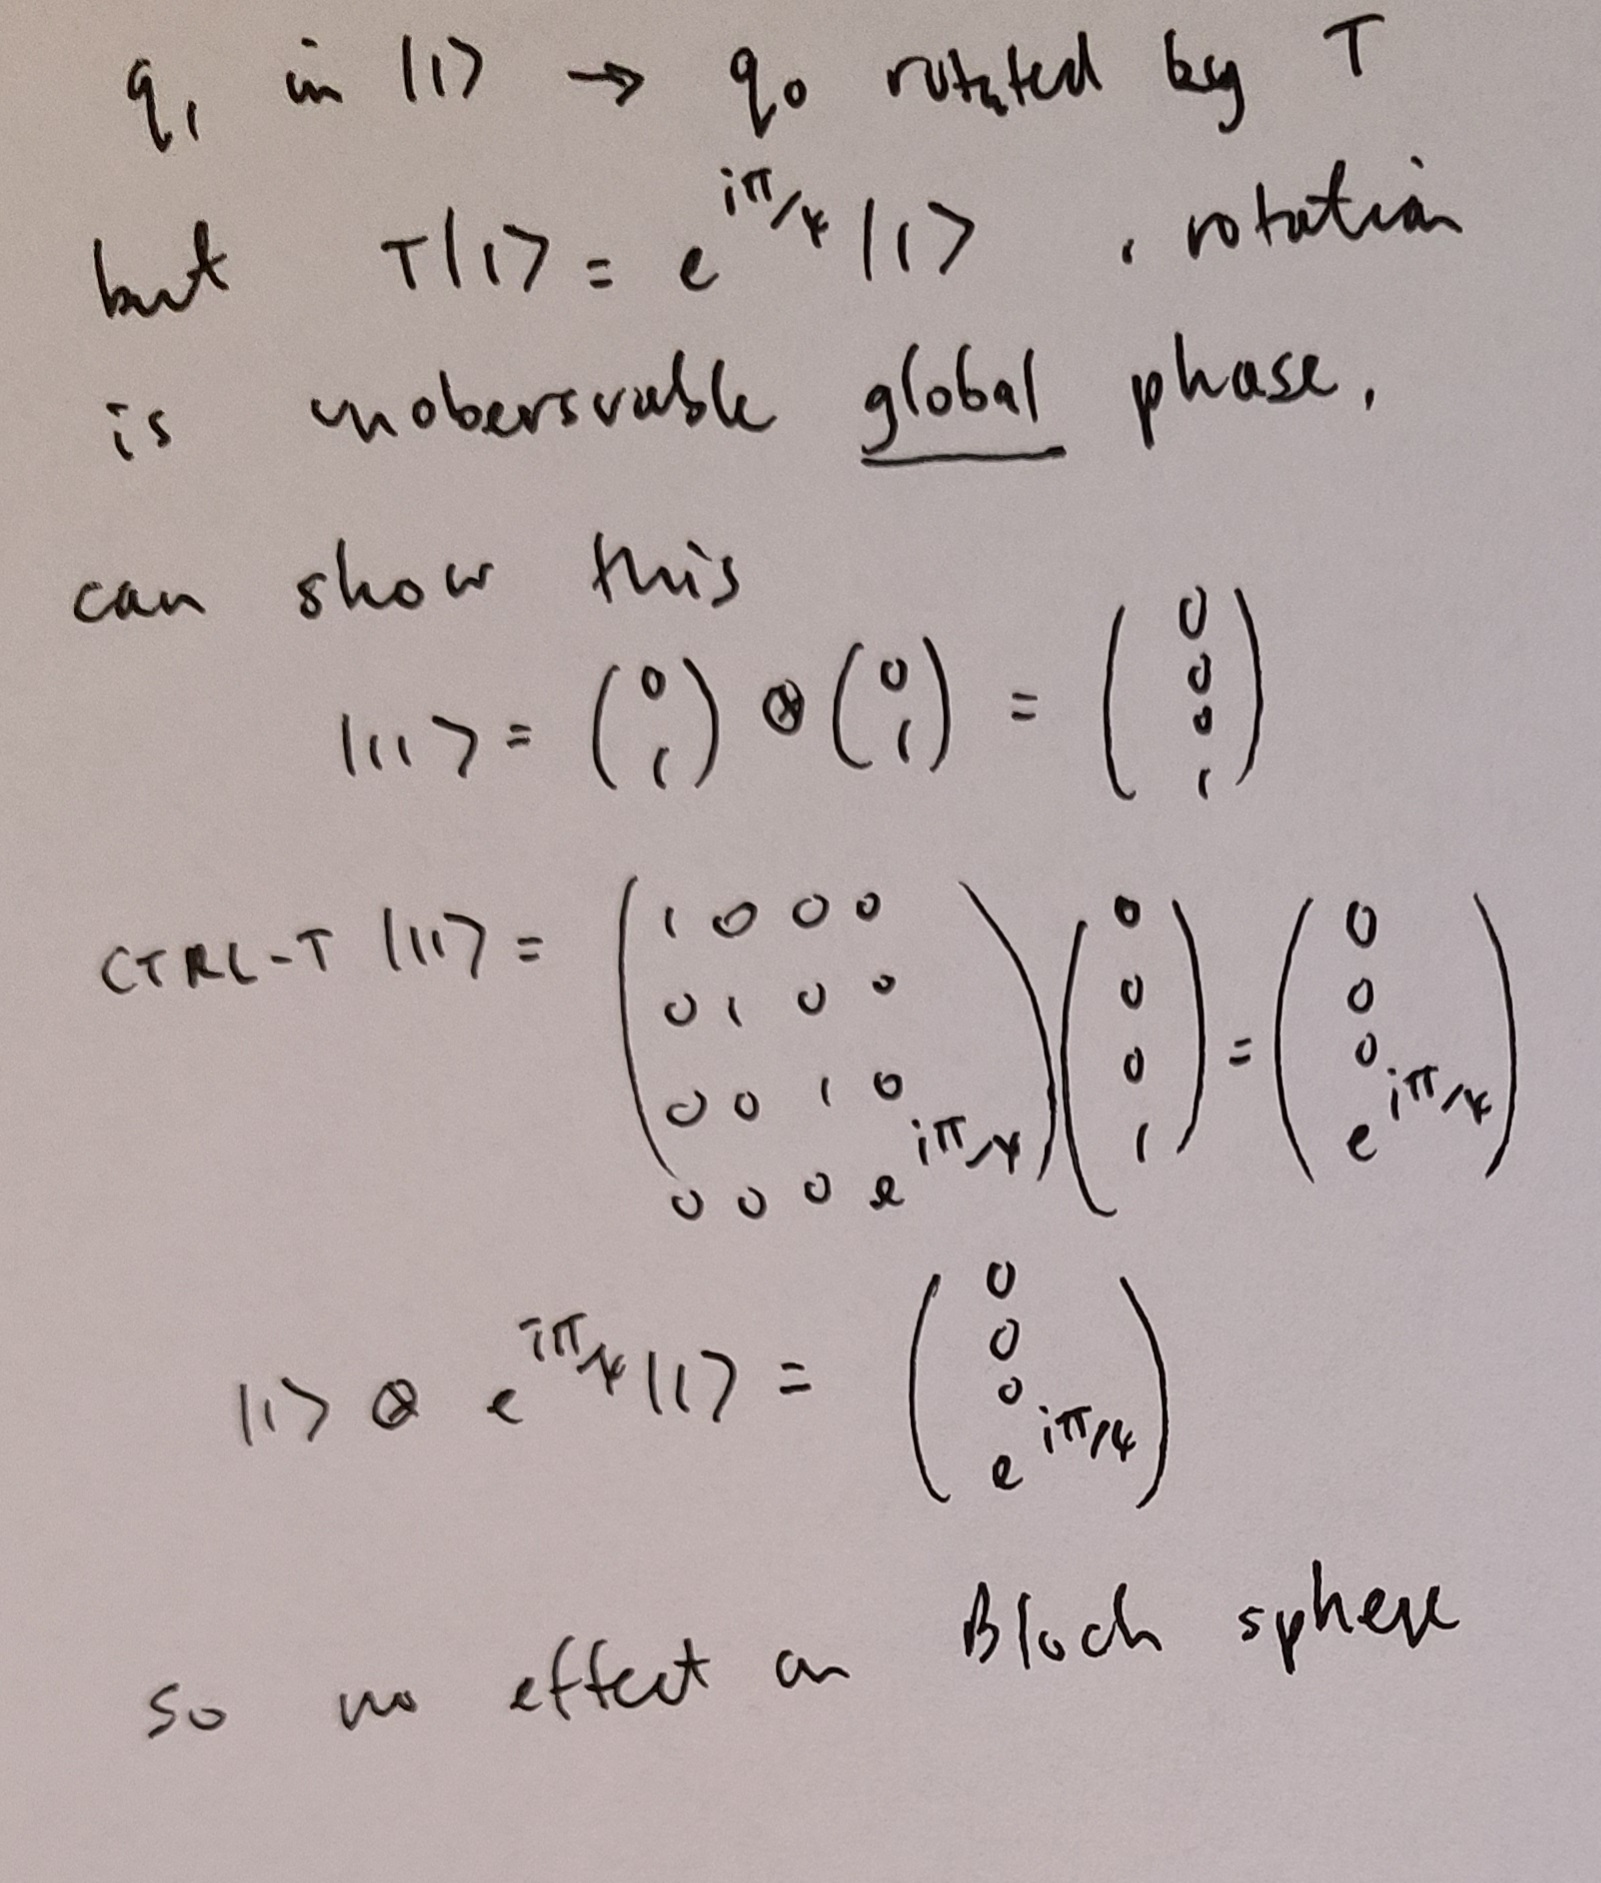 q₁ in |1⟩ → q₀ rotated by T
but T|1⟩ = e^{iπ/4} |1⟩ , rotation
is unobersvable global phase.
can show this
|11⟩ = (0 1) ⊗ (0 1) = (0 0 0 1)
CTRL-T |11⟩ = (1 0 0 0 / 0 1 0 0 / 0 0 1 0 / 0 0 0 e^{iπ/4}) (0 0 0 1) = (0 0 0 e^{iπ/4})
|1⟩ ⊗ e^{iπ/4} |1⟩ = (0 0 0 e^{iπ/4})
so no effect on Bloch sphere